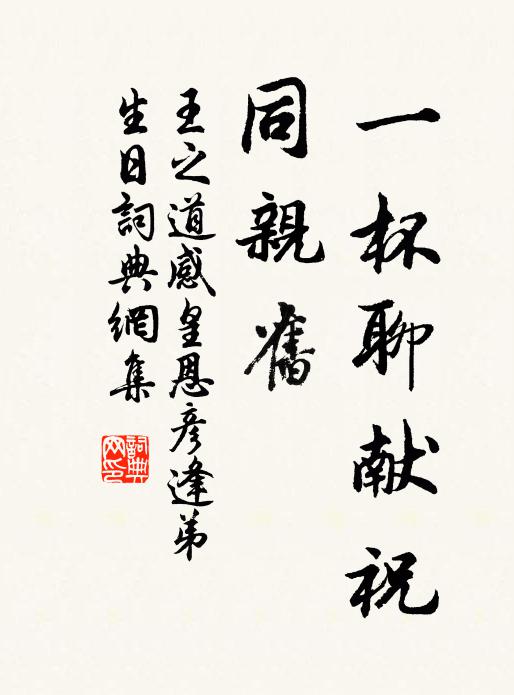 一杯聊献祝
同親舊
王之道感皇恩彦逢弟
生日詞典網集
詞典
网印